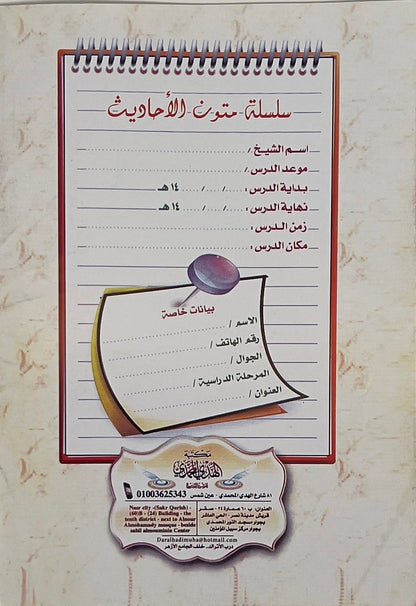 سلسلة متون الأحاديث
اسم الشيخ /
موعد الدرس /
بداية الدرس : ...../...../..... ١٤ هـ
نهاية الدرس : ...../...../..... ١٤ هـ
زمن الدرس :
مكان الدرس :
بيانات خاصة
الاسم /
رقم الهاتف /
الجوال /
المرحلة الدراسية /
العنوان /
مكتبة
الهدي المحمدي
٨١ شارع الهدي المحمدي - عين شمس 01003625343
العنوان: ب ٦٠ عمارة ٢٤ - صقر
قريش - مدينة نصر - الحي العاشر
بجوار مسجد النور المحمدي
بجوار مركز سبيل المؤمنين
Nasr city -(Sakr Qurish) -
(60)B - (24) Building - the
tenth district - next to Alnour
Almohamady mosque - beside
sabil almoamnin Center
Daralhadimoha@hotmail.com
درب الأتراك - خلف الجامع الأزهر